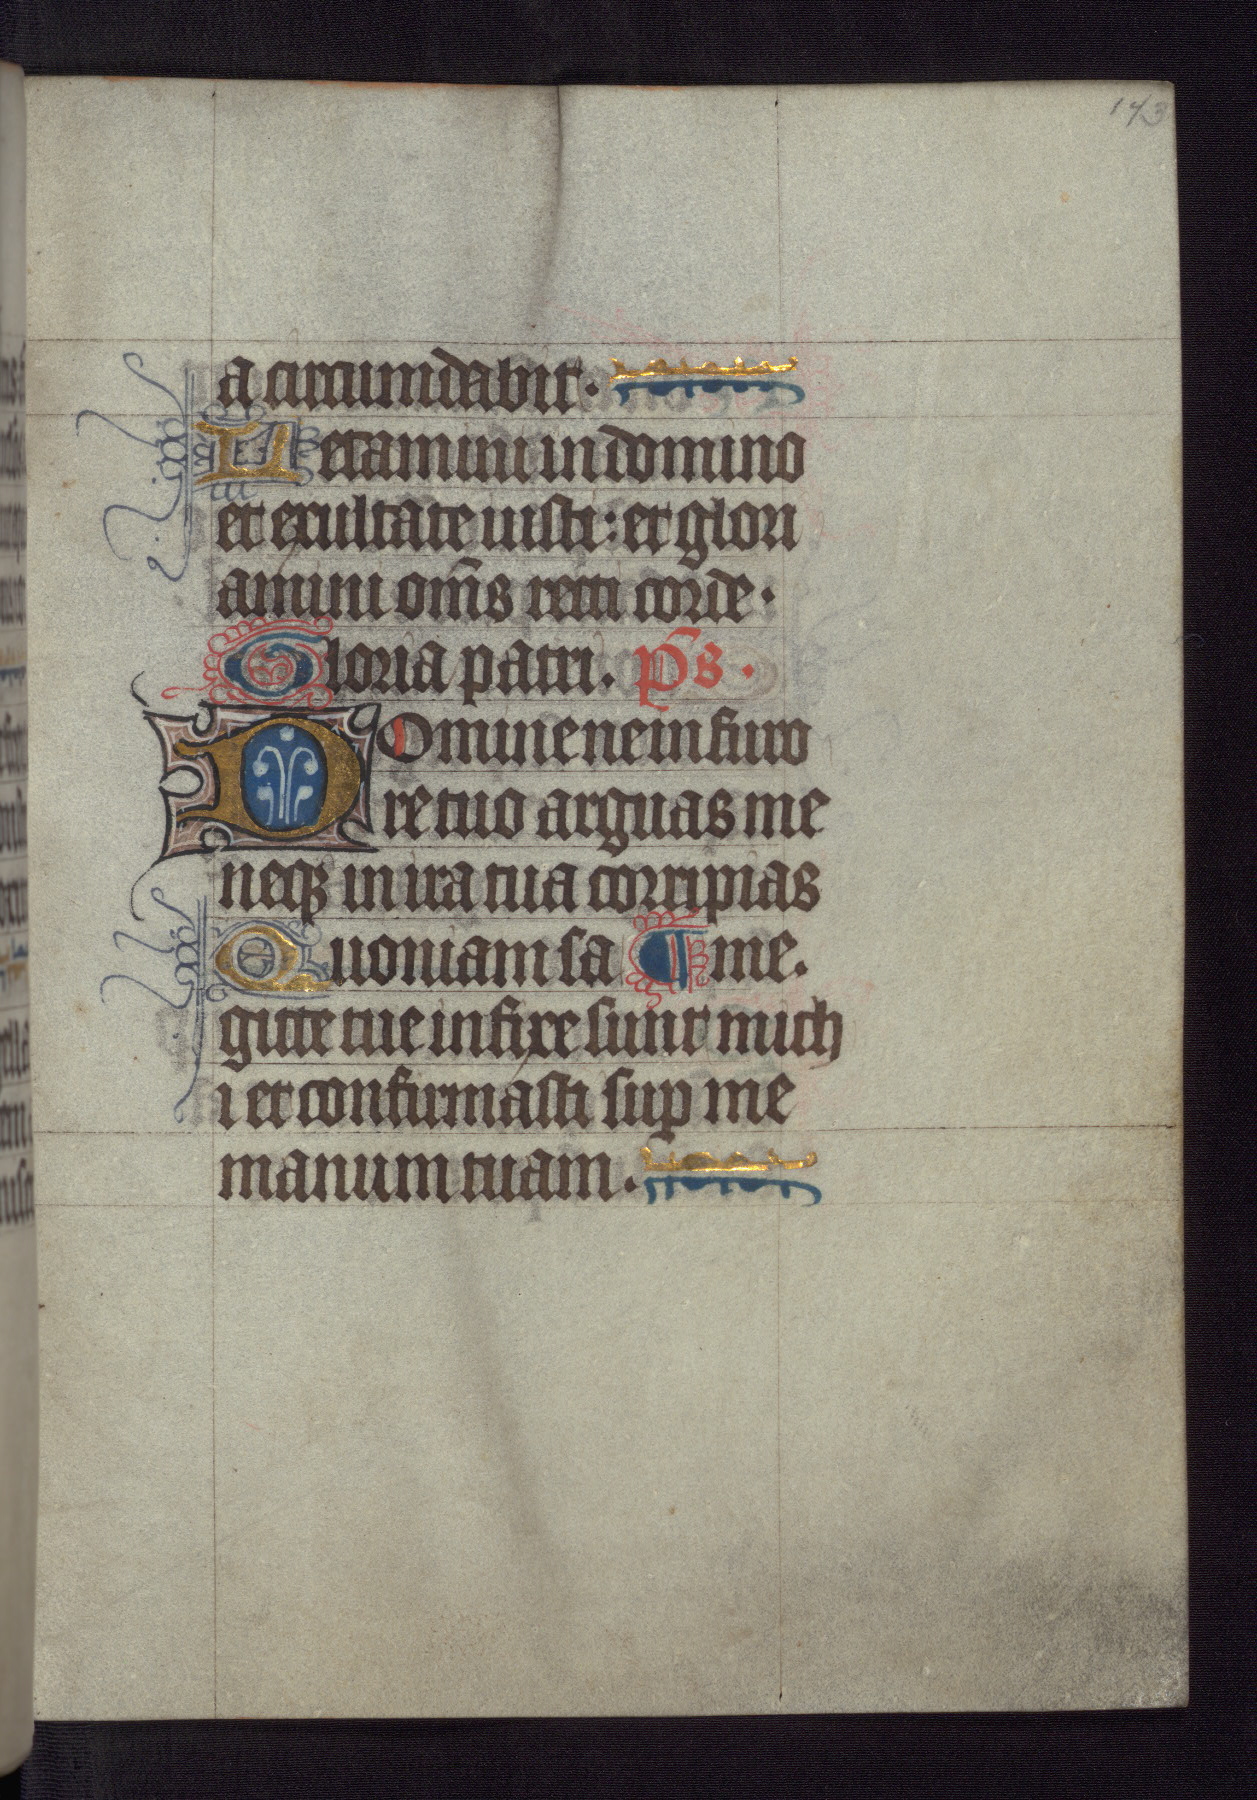 173
a circumdabit.
Letamini in domino
et exultate iusti: et glori
amini om̄s recti corde.
Gloria patri. p̄s.
Domine ne in furo
re tuo arguas me
neqꝫ in ira tua corripias
Quoniam sa ¶ me.
gitte tue infixe sunt mich
i et confirmasti suꝑ me
manum tuam.